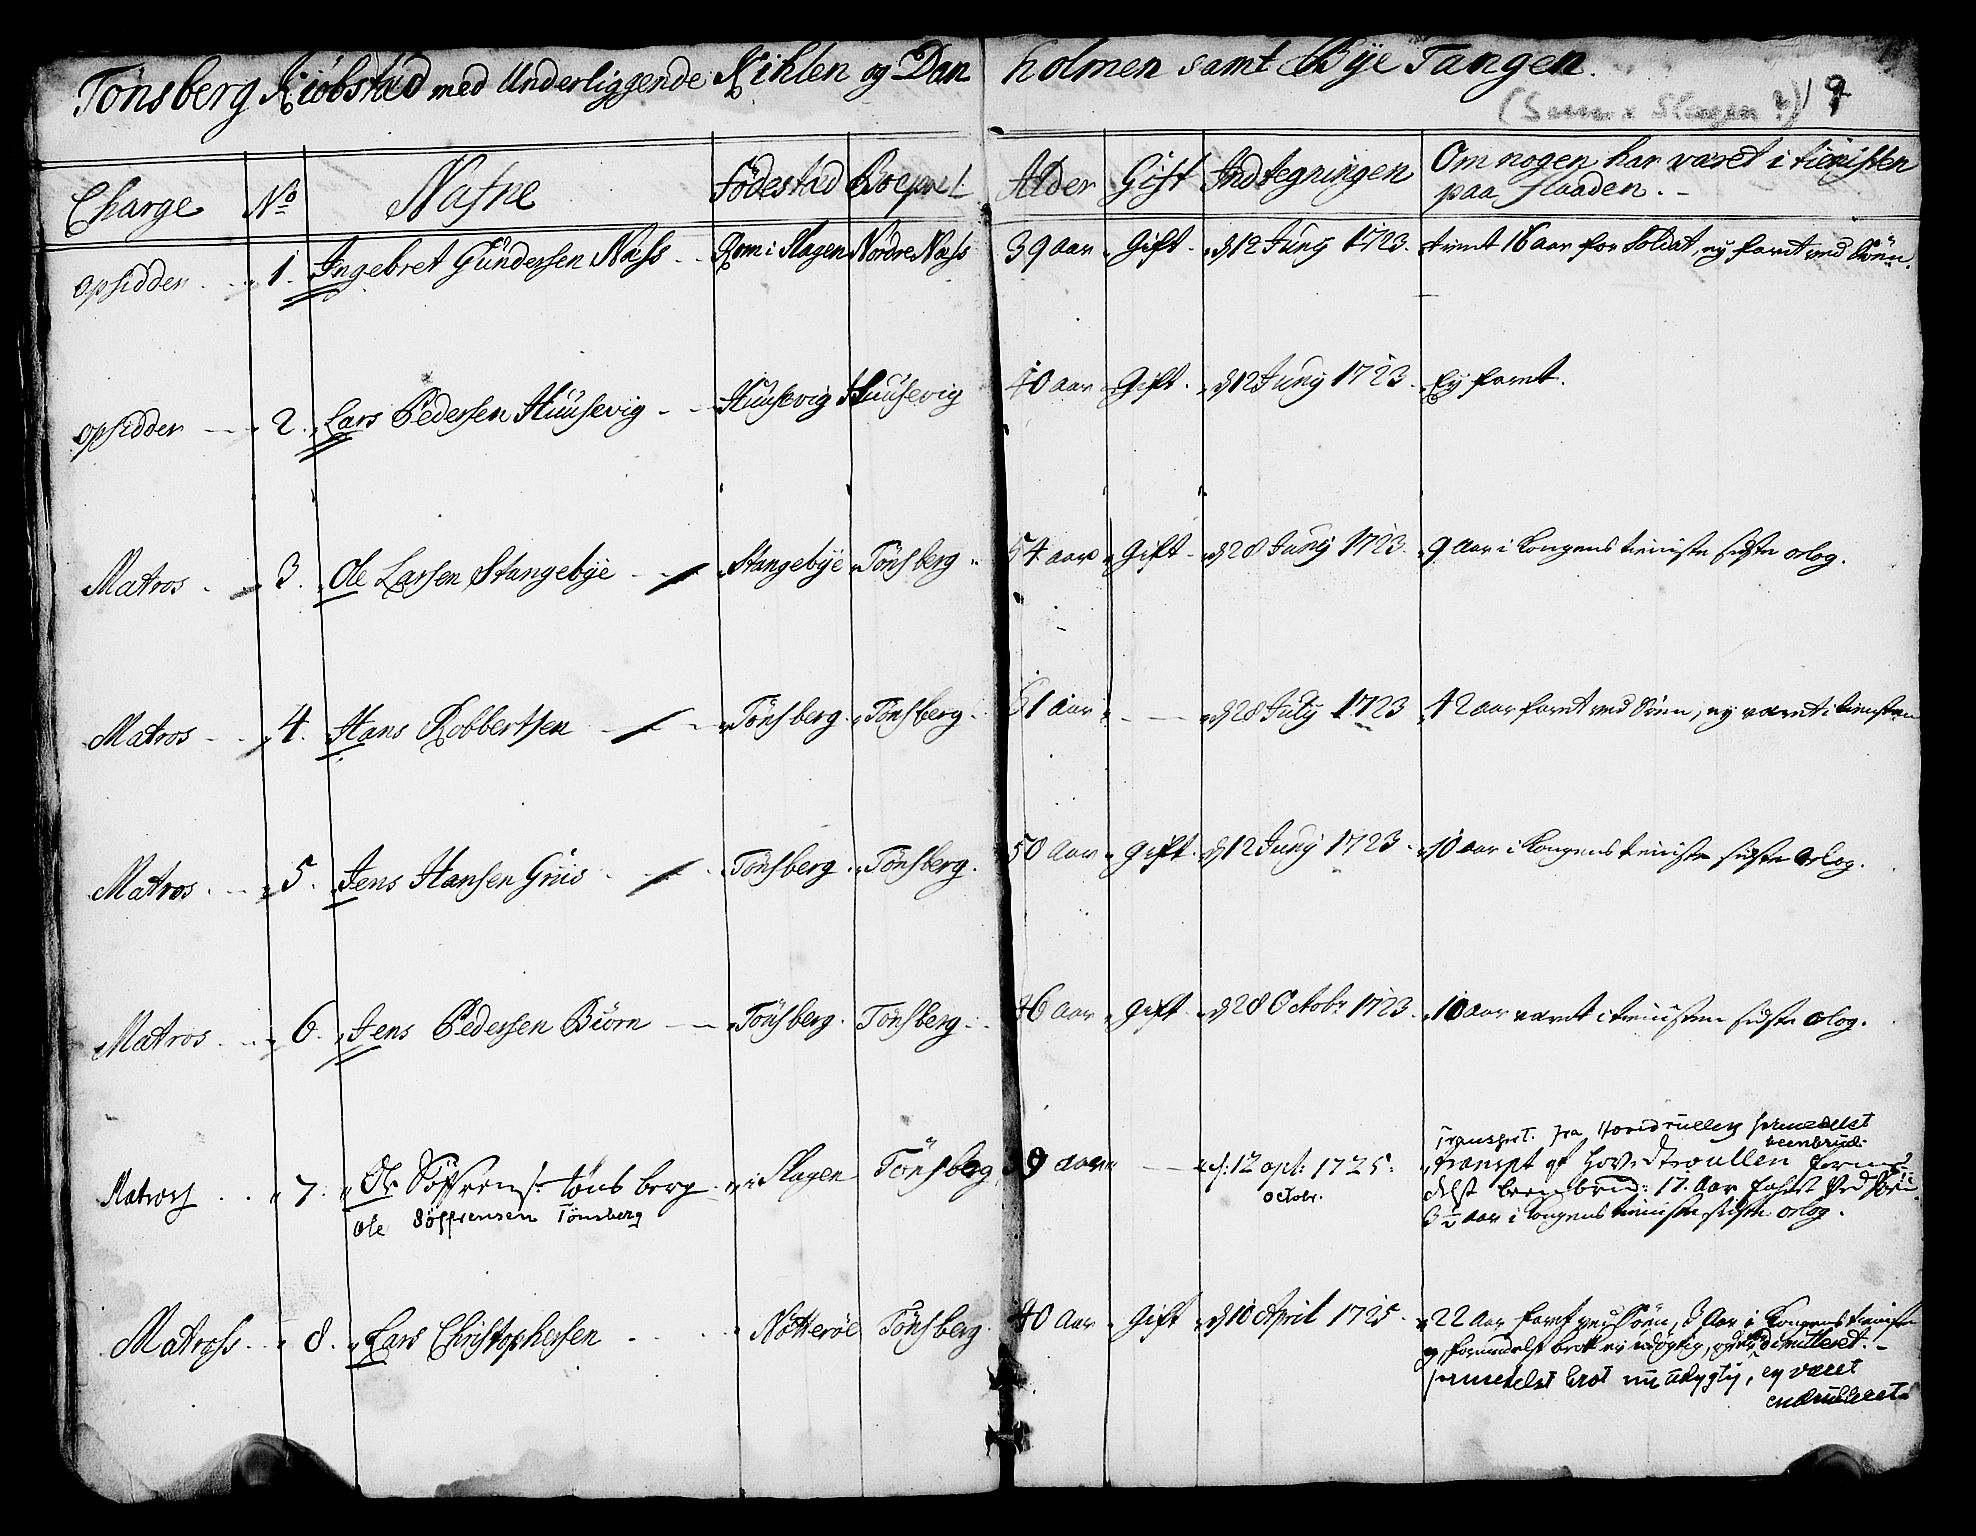 Tönsberg Kiöbstad med Underliggende Kihlen og Dan holmen samt Bÿe Tangen.
(Sem x Slagen ?) 9
Charge No Nafne Födestad Boepæl Alder Gift Indtegningen Om nogen har været i tienisten
paa flaaden.
opsidder 1. Ingebret Gundersen Næss Rom i Slagen Nordre Næss 39 aar Gift d 12 Junij 1723. tient 16 aar for Soldat, ej faret ved Söen.
opsidder 2. Lars Pedersen Huusevig Huusevig Huusevig 40 aar Gift d 12 Junij 1723. Ej faret.
Matros 3. Ole Larsen Stangebÿe Stangebÿe Tönsberg 54 aar Gift d 28 Junij 1723. 9 Aar i Kongens tieniste sidste orlog.
Matros 4. Hans Robbertsen Tönsberg Tönsberg. 61 aar d 28 July 1723 42 aar faret ved Söen, ej været i tienisten
Matros 5. Jens Hansen Griis Tönsberg Tönsberg. 50 Aar Gift d 12 Junij 1723. 10 aar i Kongens tieniste sidste orlog.
Matros 6. Jens Pedersen Biörn Tönsberg. Tönsberg 46 aar Gift d 28 Octobr 1723. 10 aar været i tienisten sidste orlog.
Transport. fra Hovidrullen formedelst
beenbrud.
Matross 7. Ole Söffrens: töns berg i Slagen Tönsberg 39 aar d: 12 apl: 1725: transpt af hovedroullen forme
Ole Söffrensen Tönsberg octobr. delst beenbrud: 17. Aar faret ved Söen
3 1/2 aar i Kongens tieniste sidste orlog.
Matross 8. Lars Christophersen Nötteröe Tönsberg. 40 Aar Gift d 10 April 1725. 22 Aar faret ved Söen, 3 Aar i Kongens tieniste
og formedelst brok ej udögtig, dimitteret.
formedelst brot nu udygtig, ey været